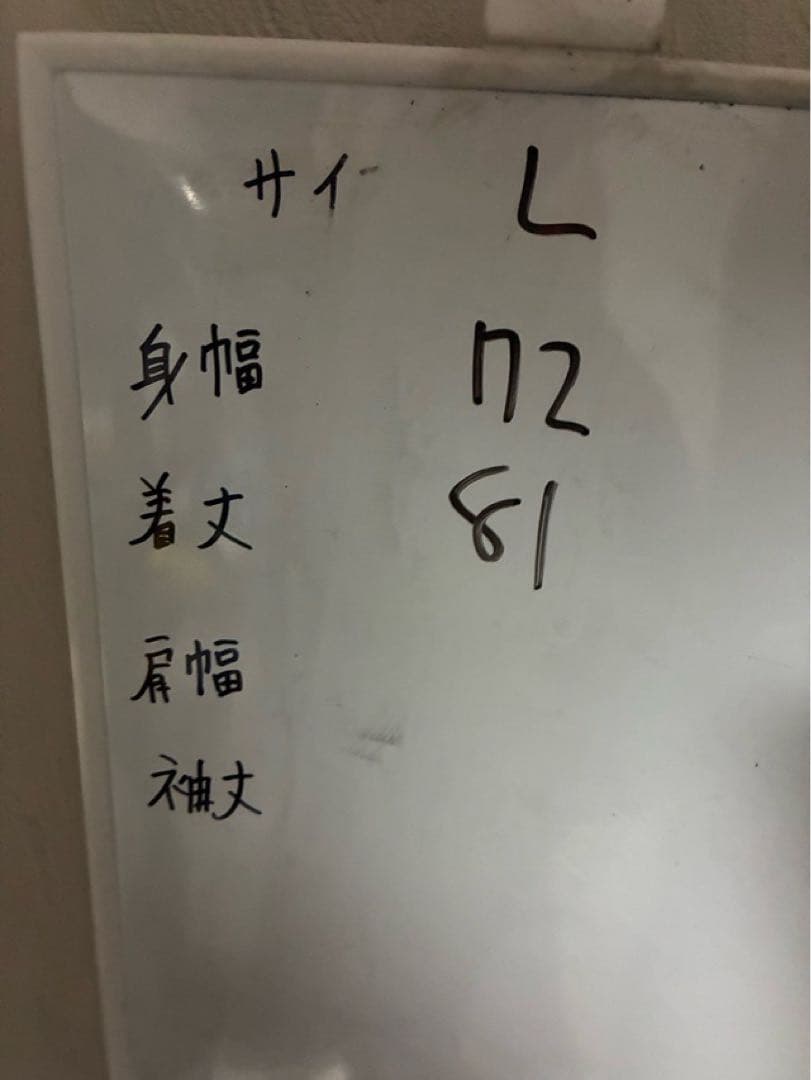 サイ L
身幅 72
着丈 81
肩幅
袖丈